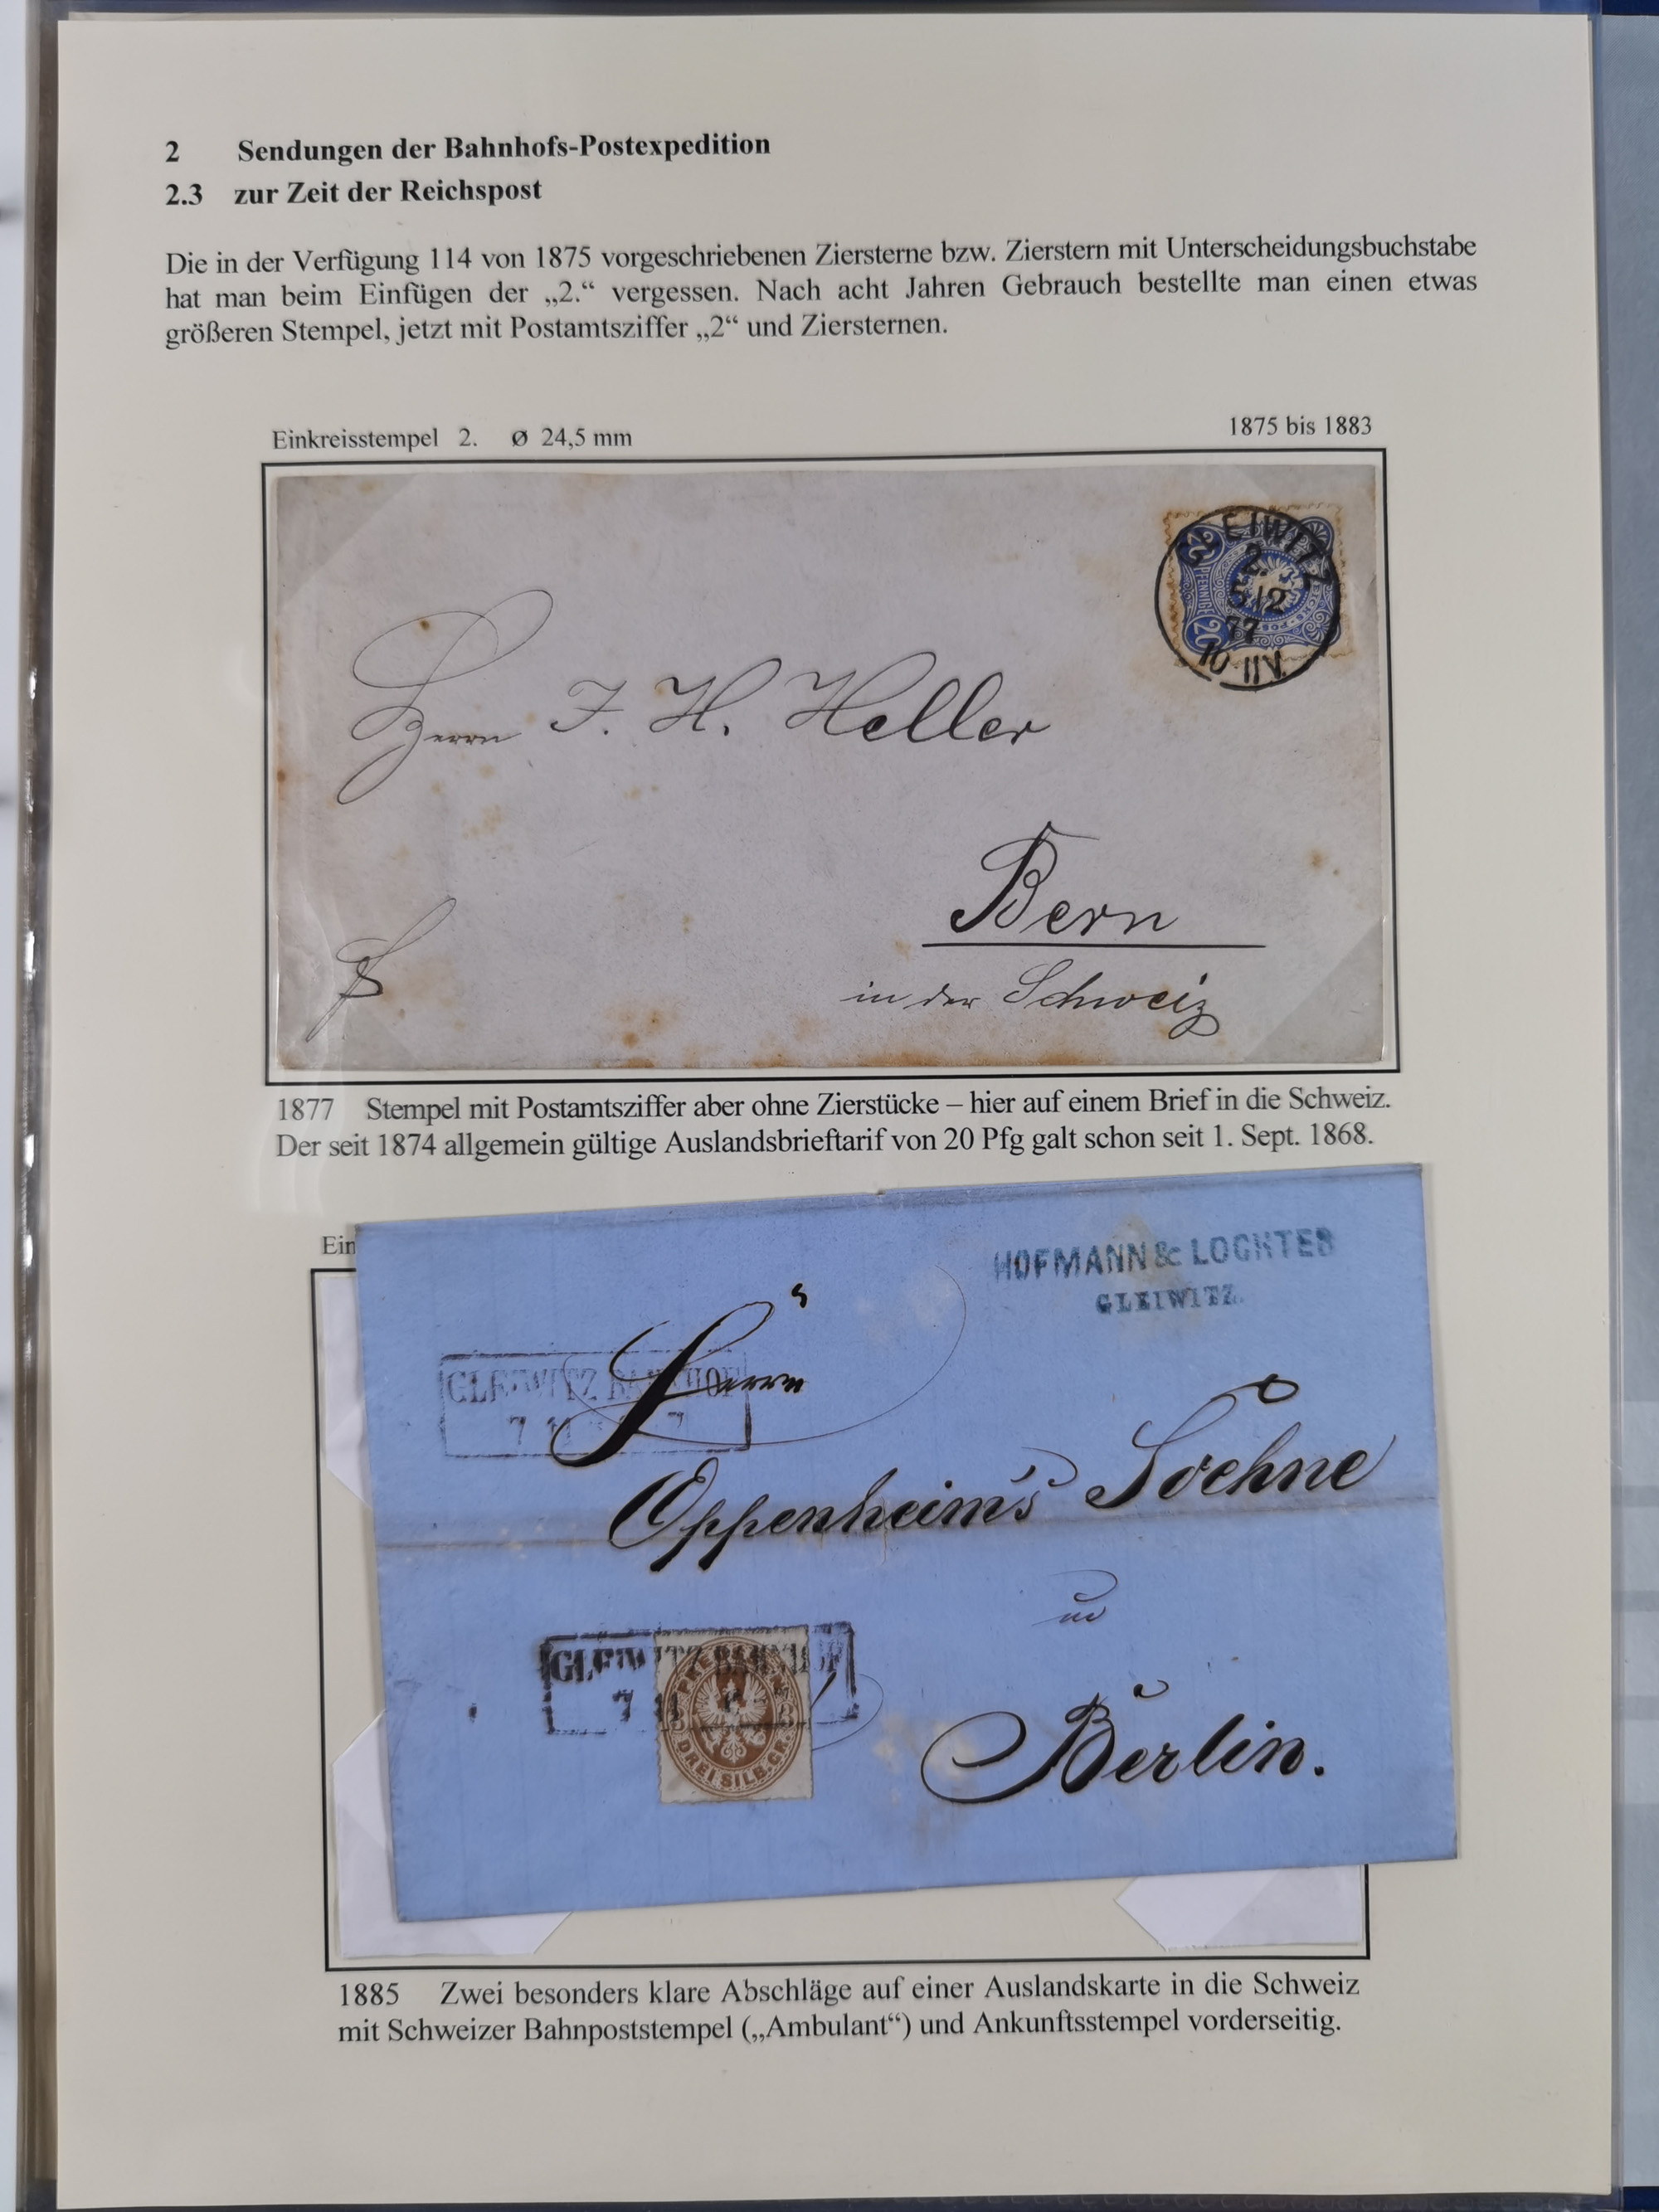 2 Sendungen der Bahnhofs-Postexpedition
2.3 zur Zeit der Reichspost
Die in der Verfügung 114 von 1875 vorgeschriebenen Ziersterne bzw. Zierstern mit Unterscheidungsbuchstabe
hat man beim Einfügen der „2.“ vergessen. Nach acht Jahren Gebrauch bestellte man einen etwas
größeren Stempel, jetzt mit Postamtsziffer „2“ und Ziersternen.
Einkreisstempel 2. Ø 24,5 mm
1875 bis 1883
GLEIWITZ
2.
5 12
77
10-11V.
20 PFENNIGE 20
Herrn F. H. Heller
Bern
in der Schweiz
1877 Stempel mit Postamtsziffer aber ohne Zierstücke – hier auf einem Brief in die Schweiz.
Der seit 1874 allgemein gültige Auslandsbrieftarif von 20 Pfg galt schon seit 1. Sept. 1868.
Ein
HOFMANN & LOCHTER
GLEIWITZ.
Herrn
GLEIWITZ BAHNHOF
7 11 7
Oppenheim's Soehne
in
GLEIWITZ BAHNHOF
7 11
DREI SILB.GR.
Berlin.
1885 Zwei besonders klare Abschläge auf einer Auslandskarte in die Schweiz
mit Schweizer Bahnpoststempel („Ambulant“) und Ankunftsstempel vorderseitig.